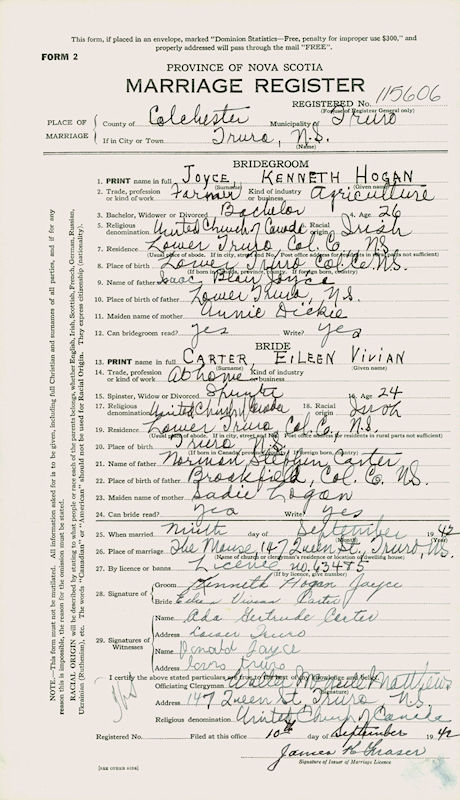 This form, if placed in an envelope, marked "Dominion Statistics—Free, penalty for improper use $300," and
properly addressed will pass through the mail "FREE".
FORM 2
PROVINCE OF NOVA SCOTIA
MARRIAGE REGISTER
REGISTERED No. 115606
(For use of Registrar General only)
PLACE OF MARRIAGE
County of Colchester Municipality of Truro
If in City or Town Truro, N.S.
(Name)
BRIDEGROOM
1. PRINT name in full JOYCE, KENNETH HOGAN
(Surname) (Given name)
2. Trade, profession or kind of work Farmer Kind of industry or business Agriculture
3. Bachelor, Widower or Divorced Bachelor 4. Age 26
5. Religious denomination United Church of Canada Racial origin Irish
7. Residence Lower Truro Col. Co. N.S.
(Usual place of abode. If in city, street and No. Post office address for residents in rural parts not sufficient)
8. Place of birth Lower Truro Col. Co. N.S.
(If born in Canada, province, county. If foreign born, country)
9. Name of father Isaac Blair Joyce
10. Place of birth of father Lower Truro, N.S.
11. Maiden name of mother Annie Dickie
12. Can bridegroom read? Yes Write? Yes
BRIDE
13. PRINT name in full CARTER, EILEEN VIVIAN
(Surname) (Given name)
14. Trade, profession or kind of work At home Kind of industry or business
15. Spinster, Widow or Divorced Spinster 16. Age 24
17. Religious denomination United Church of Canada 18. Racial origin Irish
19. Residence Lower Truro, Col. Co., N.S.
(Usual place of abode. If in city, street and No. Post office address for residents in rural parts not sufficient)
20. Place of birth Truro N.S.
(If born in Canada, province, county. If foreign born, country)
21. Name of father Norman Stephen Carter
22. Place of birth of father Brookfield, Col. Co. N.S.
23. Maiden name of mother Sadie Logan
24. Can bride read? Yes Write? Yes
25. When married Ninth day of September 1942
(Month) (Year)
26. Place of marriage The Manse, 147 Queen St., Truro, N.S.
(Name of church or clergyman's residence or location of dwelling house)
27. By licence or banns Licence no. 63475
(If by licence, give number)
28. Signature of
Groom Kenneth Hogan Joyce
Bride Eileen Vivian Carter
29. Signatures of Witnesses
Name Ada Gertrude Carter
Address Lower Truro
Name Donald Joyce
Address Lower Truro
I certify the above stated particulars are true to the best of my knowledge and belief.
Officiating Clergyman Matthews
(Signature)
Address 147 Queen St. Truro, N.S.
Religious denomination United Church of Canada
Registered No. Filed at this office 10th day of September 1942
James K. Fraser
Signature of Issuer of Marriage Licence
[SEE OTHER SIDE]
NOTE.—This form must not be mutilated. All information asked for is to be given, including full Christian and surnames of all parties, and if for any
reason this is impossible, the reason for the omission must be stated.
RACIAL ORIGIN will be described by stating to what people or race each of the parents belongs, whether English, Irish, Scottish, French, German, Russian,
Ukrainian (Ruthenian), etc. The words "Canadian" or "American" should not be used for Racial Origin. They express citizenship (nationality).